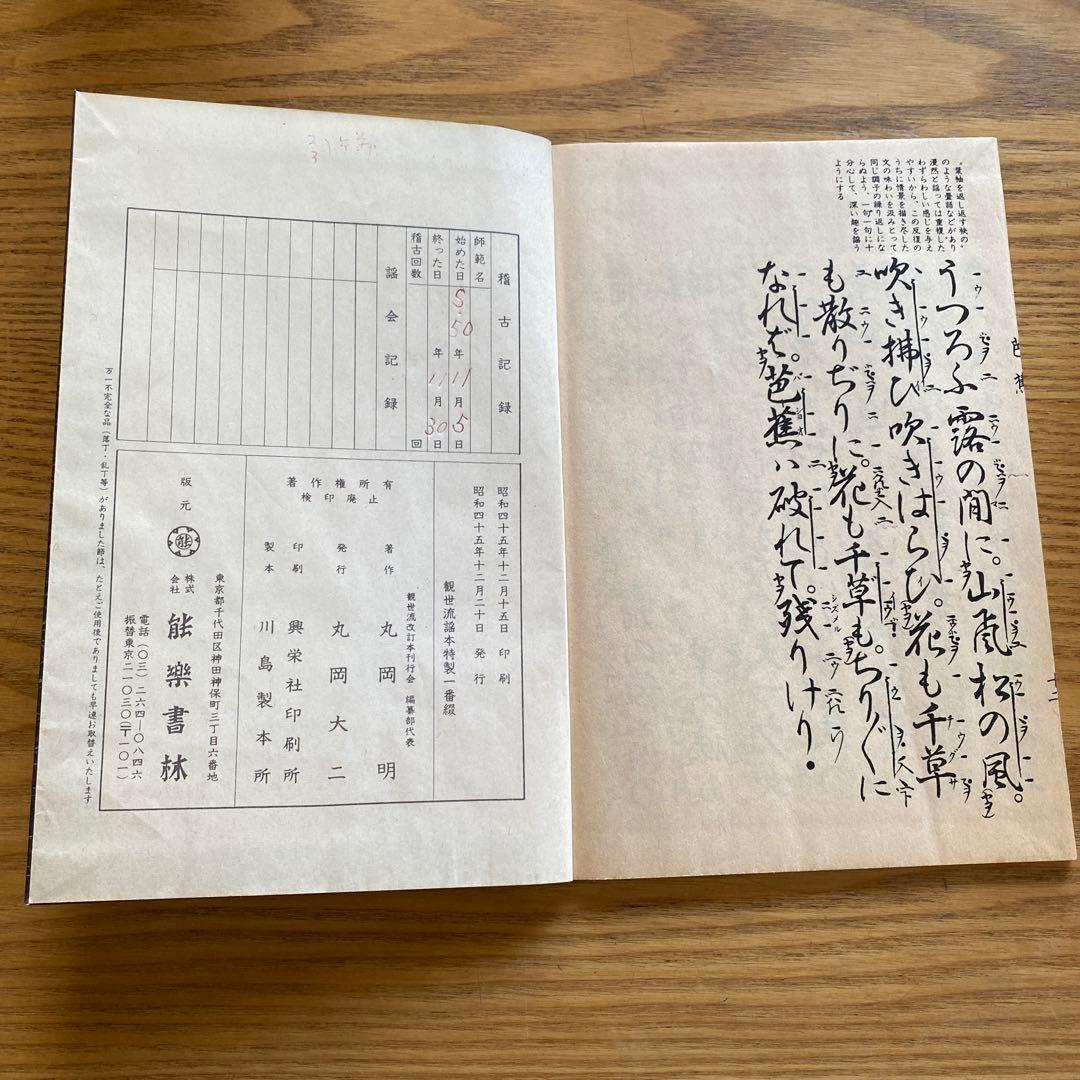 芭蕉
十二
〝葉袖を返し返す袂〟
のような畳語などがあり
漫然と謡っては重複した
わずらわしい感じを与え
やすいから、この反復の
うちに情景を描き尽した
文の味わいを汲みとって
同じ調子の繰り返しにな
らぬよう、一句一句に十
分心して、深い趣を謡う
ようにする
うつろふ露の間に。山颪松の風。
吹き拂ひ吹きはらひ。花も千草
も散りぢりに。花も千草もちりぐに
なれば。芭蕉ハ破れて。残りけり
稽古記録
師範名
始めた日 S.50年11月5日
終った日 年11月30日
稽古回数 回
謡会記録
昭和四十五年十二月十五日 印刷
昭和四十五年十二月二十日 発行
観世流謡本特製一番綴
観世流改訂本刊行会 編纂部代表
著作 丸岡明
発行 丸岡大二
印刷 興栄社印刷所
製本 川島製本所
著作権所有
検印廃止
東京都千代田区神田神保町三丁目六番地
版元 能 株式会社 能樂書林
電話(〇三)二六四―〇八四六
振替東京二一〇三〇(〒一〇一)
万一不完全な品(落丁・乱丁等)がありました節は、たとえご使用後でありましても早速お取替えいたします